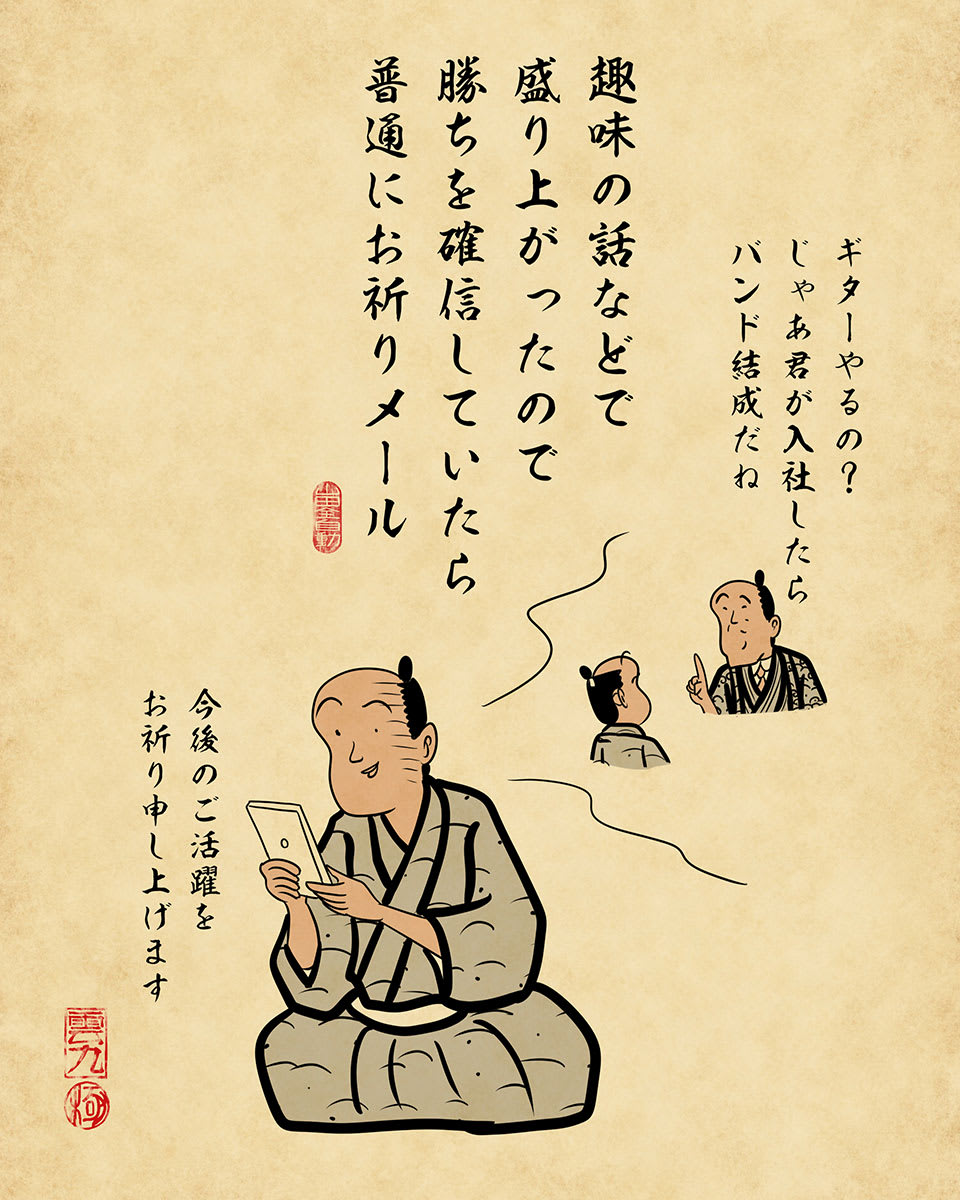 趣味の話などで
盛り上がったので
勝ちを確信していたら
普通にお祈りメール
ギターやるの?
じゃあ君が入社したら
バンド結成だね
今後のご活躍を
お祈り申し上げます